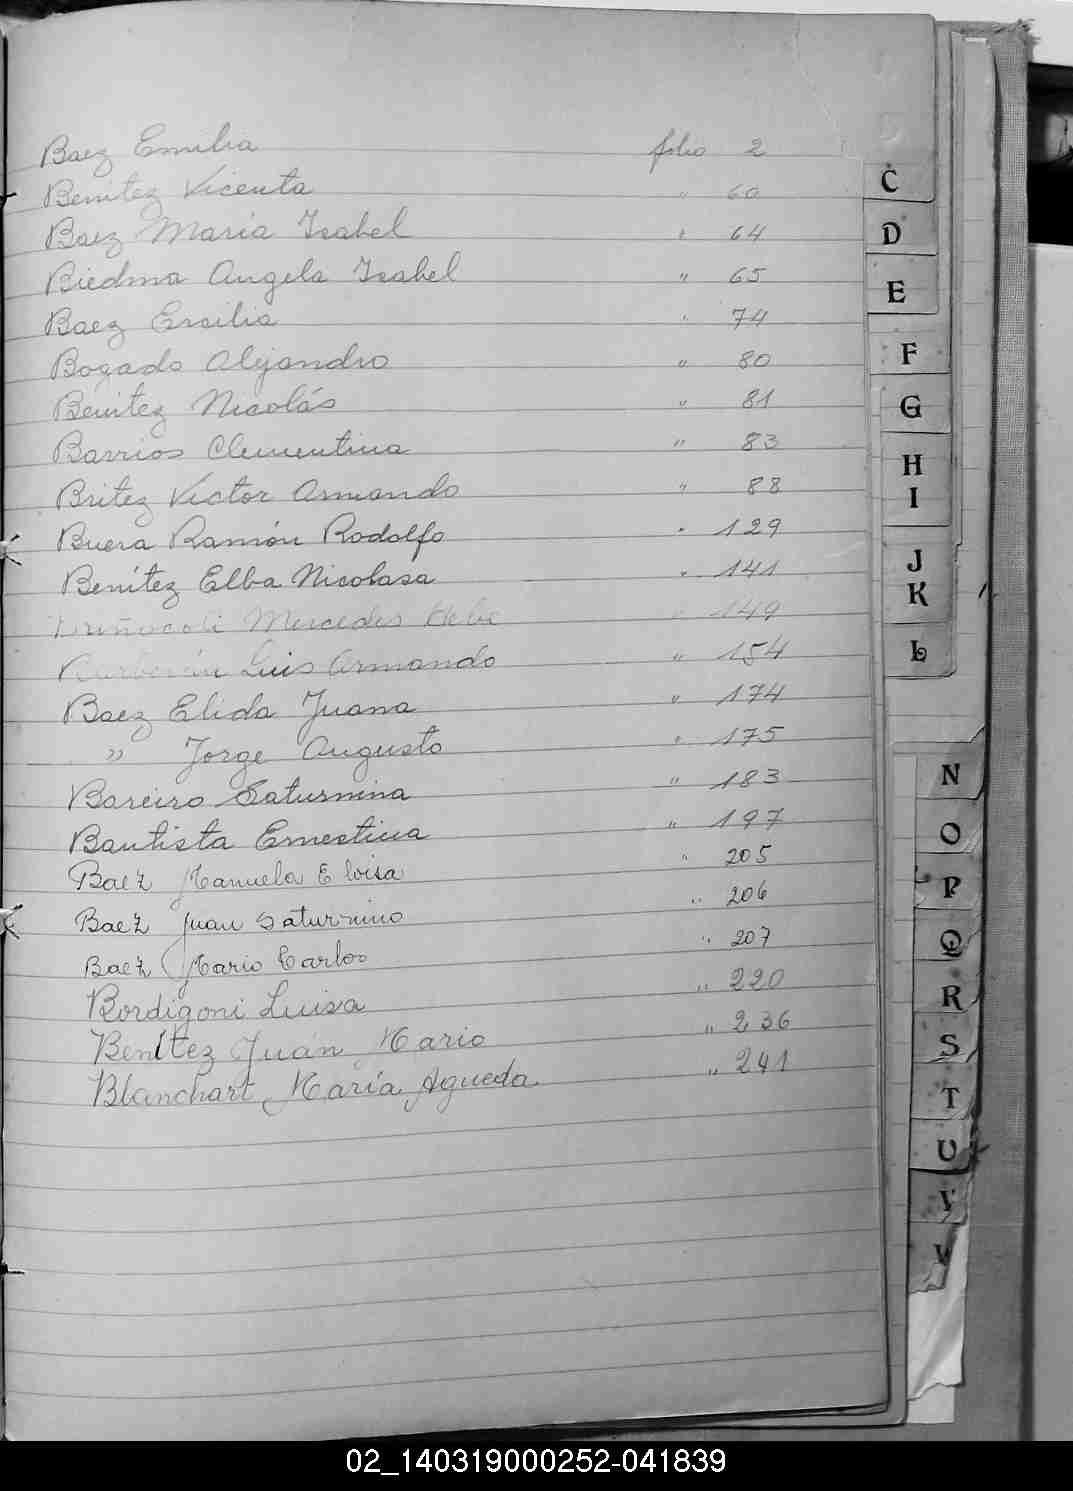 Baez Emilia folio 2
Benitez Vicenta " 60
Baez Maria Isabel " 64
Biedma Angela Isabel " 65
Baez Ersilia " 74
Bogado Alejandro " 80
Benitez Nicolás " 81
Barrios Clementina " 83
Britez Victor Armando " 88
Buera Ramón Rodolfo " 129
Benítez Elba Nicolasa " 141
Mercedes Hebe " 149
Luis Armando " 154
Baez Elida Juana " 174
" Jorge Augusto " 175
Bareiro Saturnina " 183
Bautista Ernestina " 197
Baez Manuela Eloisa " 205
Baez Juan Saturnino " 206
Baez Mario Carlos " 207
Bordigoni Luisa " 220
Benítez Juan Mario " 236
Blanchart María Agueda " 241
C
D
E
F
G
H
I
J
K
L
N
O
P
Q
R
S
T
U
V
02_140319000252-041839